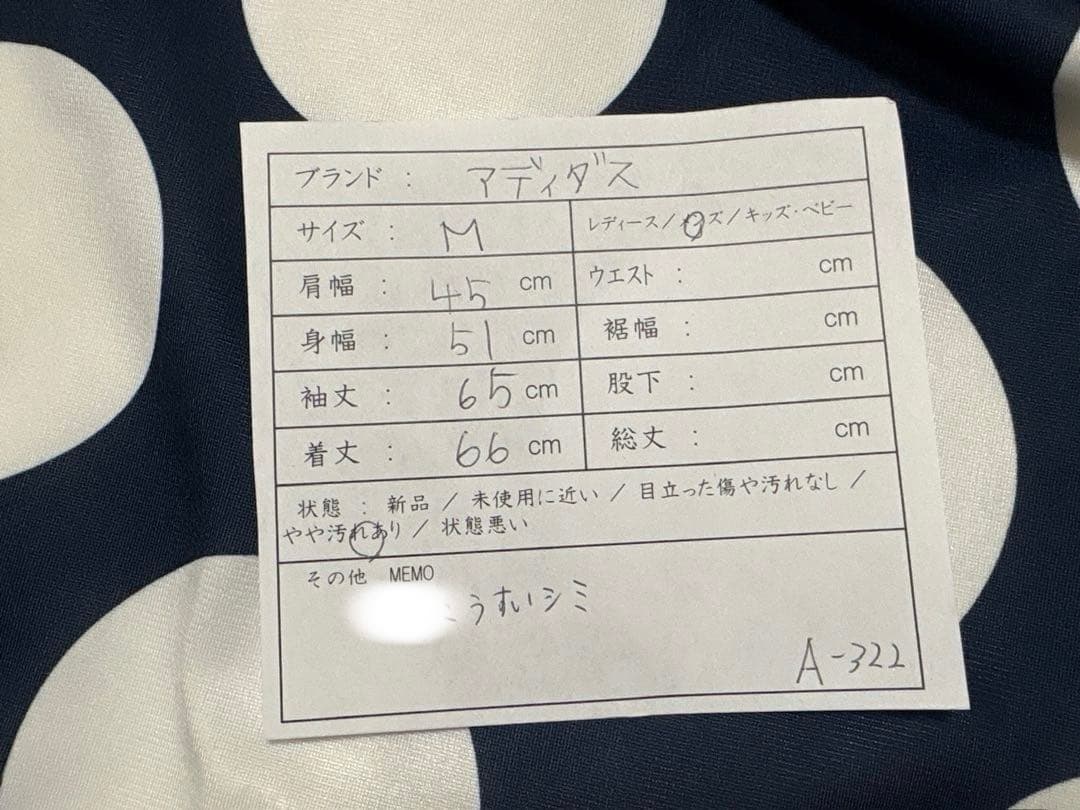 ブランド : アディダス
サイズ : M
レディース/メンズ/キッズ・ベビー
肩幅 : 45 cm
ウエスト : cm
身幅 : 51 cm
裾幅 : cm
袖丈 : 65 cm
股下 : cm
着丈 : 66 cm
総丈 : cm
状態 : 新品 / 未使用に近い / 目立った傷や汚れなし /
やや汚れあり / 状態悪い
その他 MEMO
うすいシミ
A-322